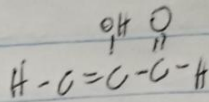 OH O
H - C = C - C - H